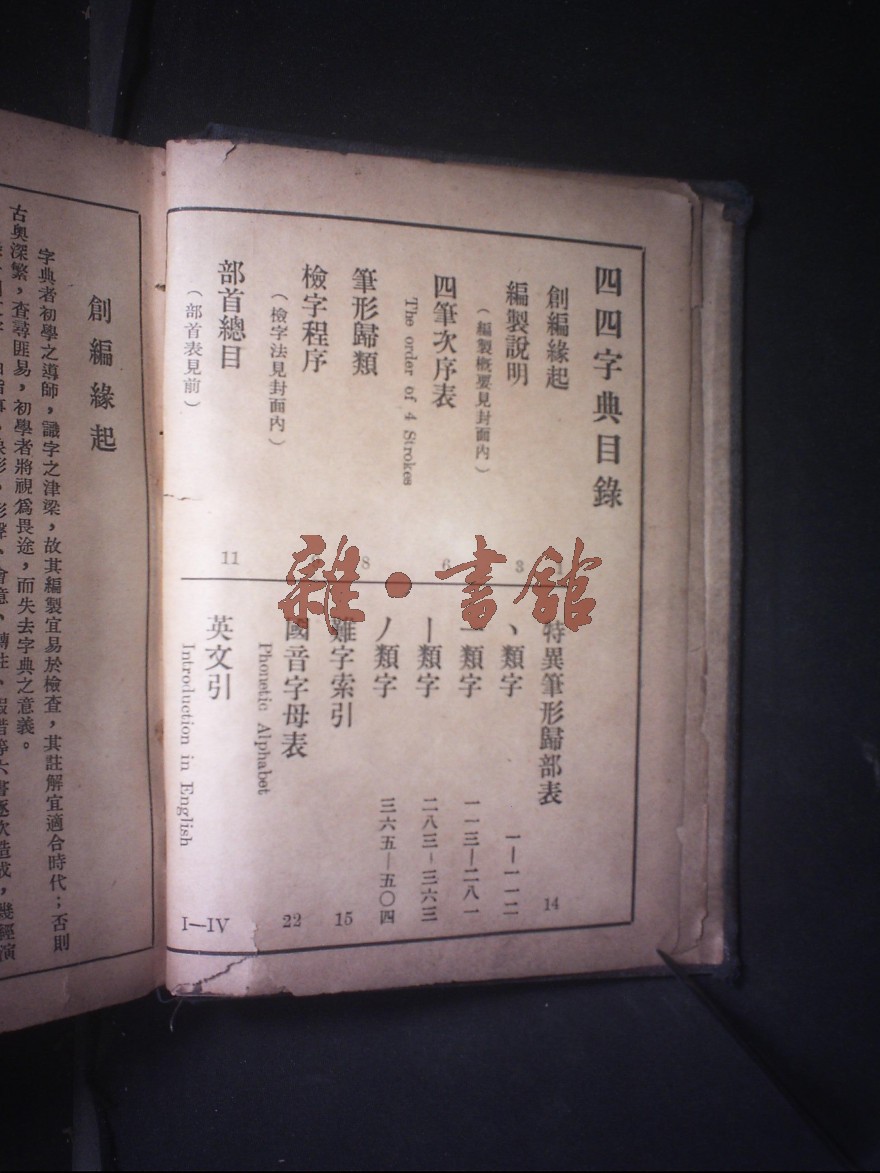 四四字典目錄
創編緣起 1
編製說明 3
（編製概要見封面內）
四筆次序表 6
The order of 4 Strokes
筆形歸類 8
檢字程序
（檢字法見封面內）
部首總目 11
（部首表見前）
特異筆形歸部表 14
丶類字 一—一一二
一類字 一一三—二八一
丨類字 二八三—三六三
丿類字 三六五—五〇四
難字索引 15
國音字母表 22
Phonetic Alphabet
英文引 I—IV
Introduction in English
創編緣起
字典者初學之導師，識字之津梁，故其編製宜易於檢查，其註解宜適合時代；否則
古奧深繁，查尋匪易，初學者將視爲畏途，而失去字典之意義。
象形、形聲、會意、轉注、假借等六書逐次造成，幾經演
雜·書館